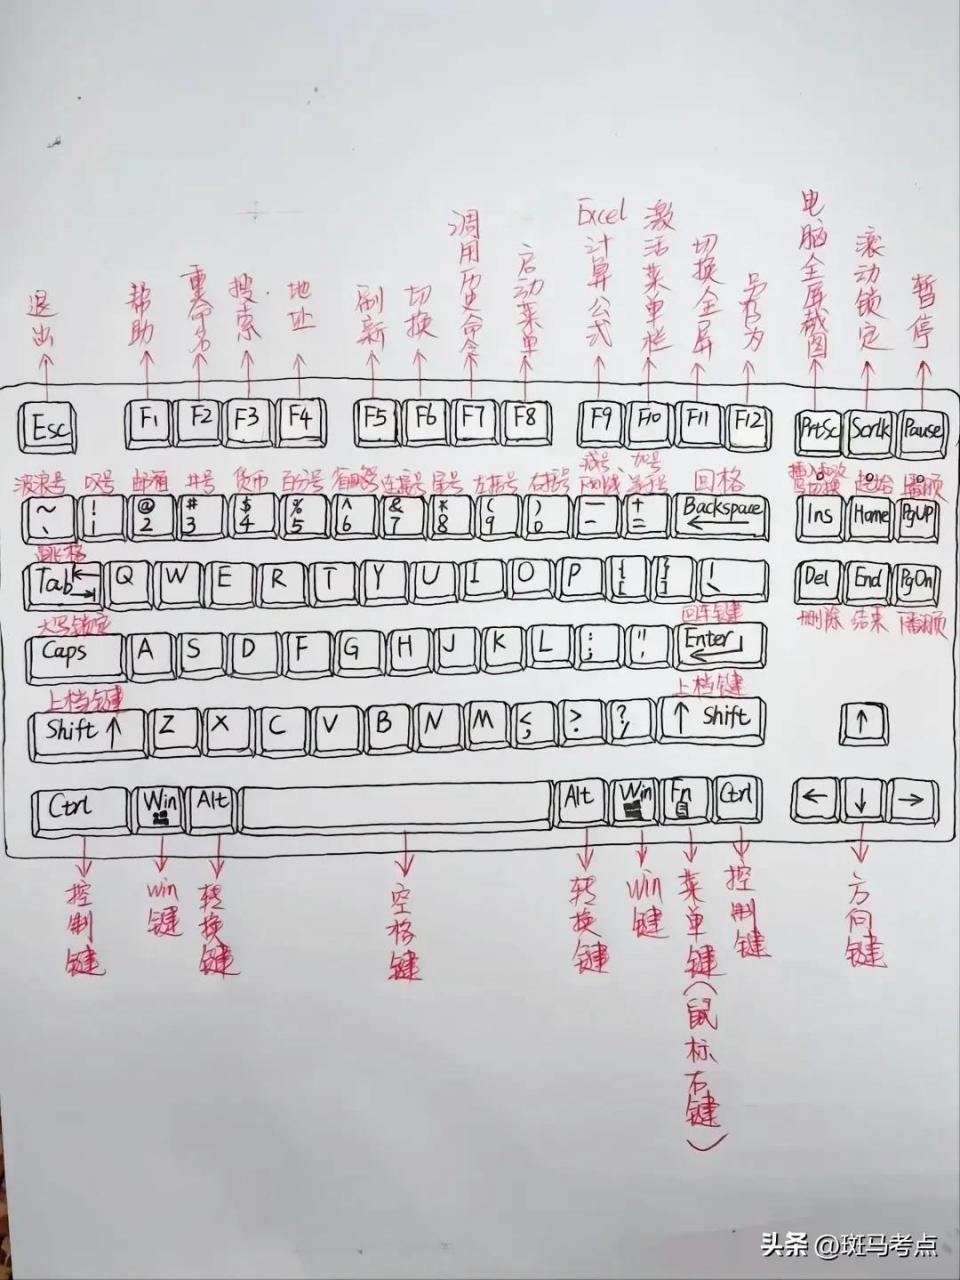 退出 帮助 重命名 搜索 地址 刷新 切换 调用历史命令 启动菜单 Excel计算公式 激活菜单栏 切换全屏 另存为 电脑全屏截图 滚动锁定 暂停
Esc F1 F2 F3 F4 F5 F6 F7 F8 F9 F10 F11 F12 PrtSc Scrlk Pause
波浪号 叹号 邮箱 井号 货币 百分号 省略号 连接号 星号 左括号 右括号 减号 下划线 加号 等号 回格 切换 起始 上翻页
~ ` ! 1 @ 2 # 3 $ 4 % 5 ^ 6 & 7 * 8 ( 9 ) 0 — - + = Backspace Ins Home PgUP
跳格
Tab Q W E R T Y U I O P { [ } ] | \ Del End PgDn
大写锁定 回车键 删除 结束 下翻页
Caps A S D F G H J K L : ; " ' Enter
上档键 上档键
Shift ↑ Z X C V B N M < , > . ? / ↑ Shift ↑
Ctrl Win Alt Alt Win Fn Ctrl ← ↓ →
控制键 win键 转换键 空格键 转换键 Win键 菜单键(鼠标右键) 控制键 方向键
头条 @斑马考点